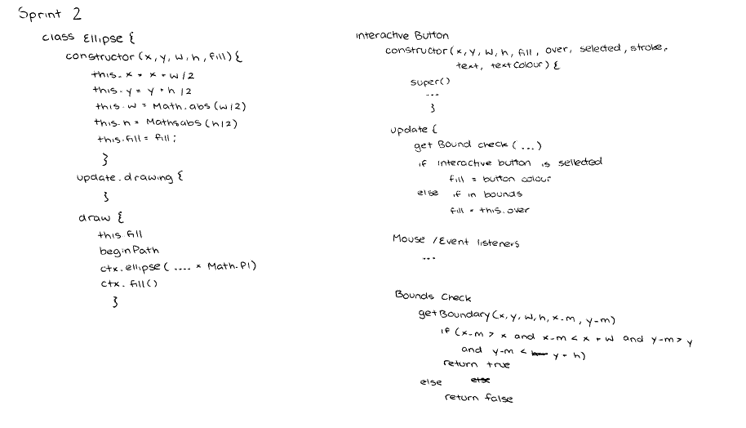 Sprint 2
class Ellipse {
constructor (x, y, w, h, fill) {
this.x = x + w/2
this.y = y + h/2
this.w = Math.abs (w/2)
this.h = Mathsabs (h/2)
this.fill = fill;
}
update.drawing {
}
draw {
this fill
beginPath
ctx.ellipse ( .... * Math.PI)
ctx. fill()
}
interactive Button
constructor (x, y, w, h, fill, over, selected, stroke,
text, textColour) {
super()
...
}
update {
get Bound check (...)
if interactive button is sellected
fill = button colour
else if in bounds
fill = this.over
Mouse / Event listeners
...
Bounds Check
getBoundary (x, y, w, h, x-m, y-m)
if (x-m > x and x-m < x + w and y-m > y
and y-m < y + h)
return true
else else
return false